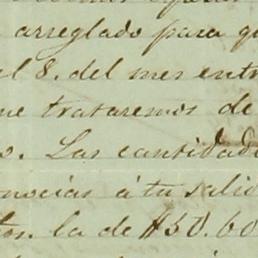 arreglado para qu
el 8. del mes entr
ue trataremos de
o. Las cantidade
nocias á tu salid
tos. la de $50.60